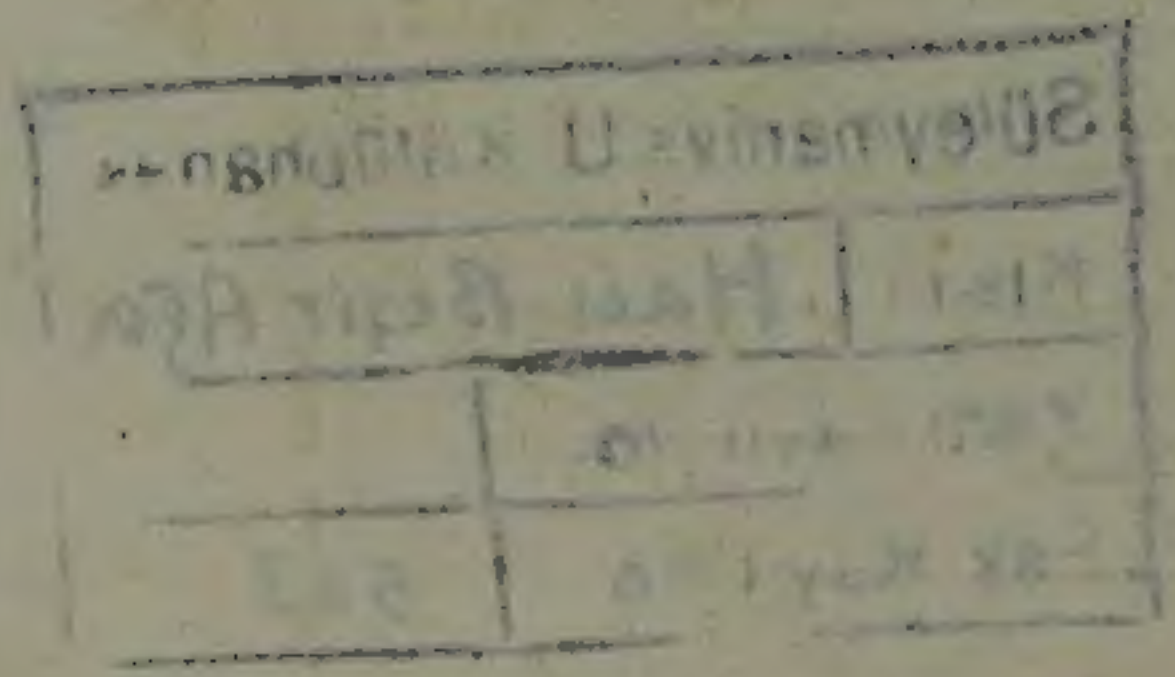 Süleymaniye U. Kütüphanesi
Kısmı Hacı Beşir Ağa
Yeni Kayıt No.
Eski Kayıt No